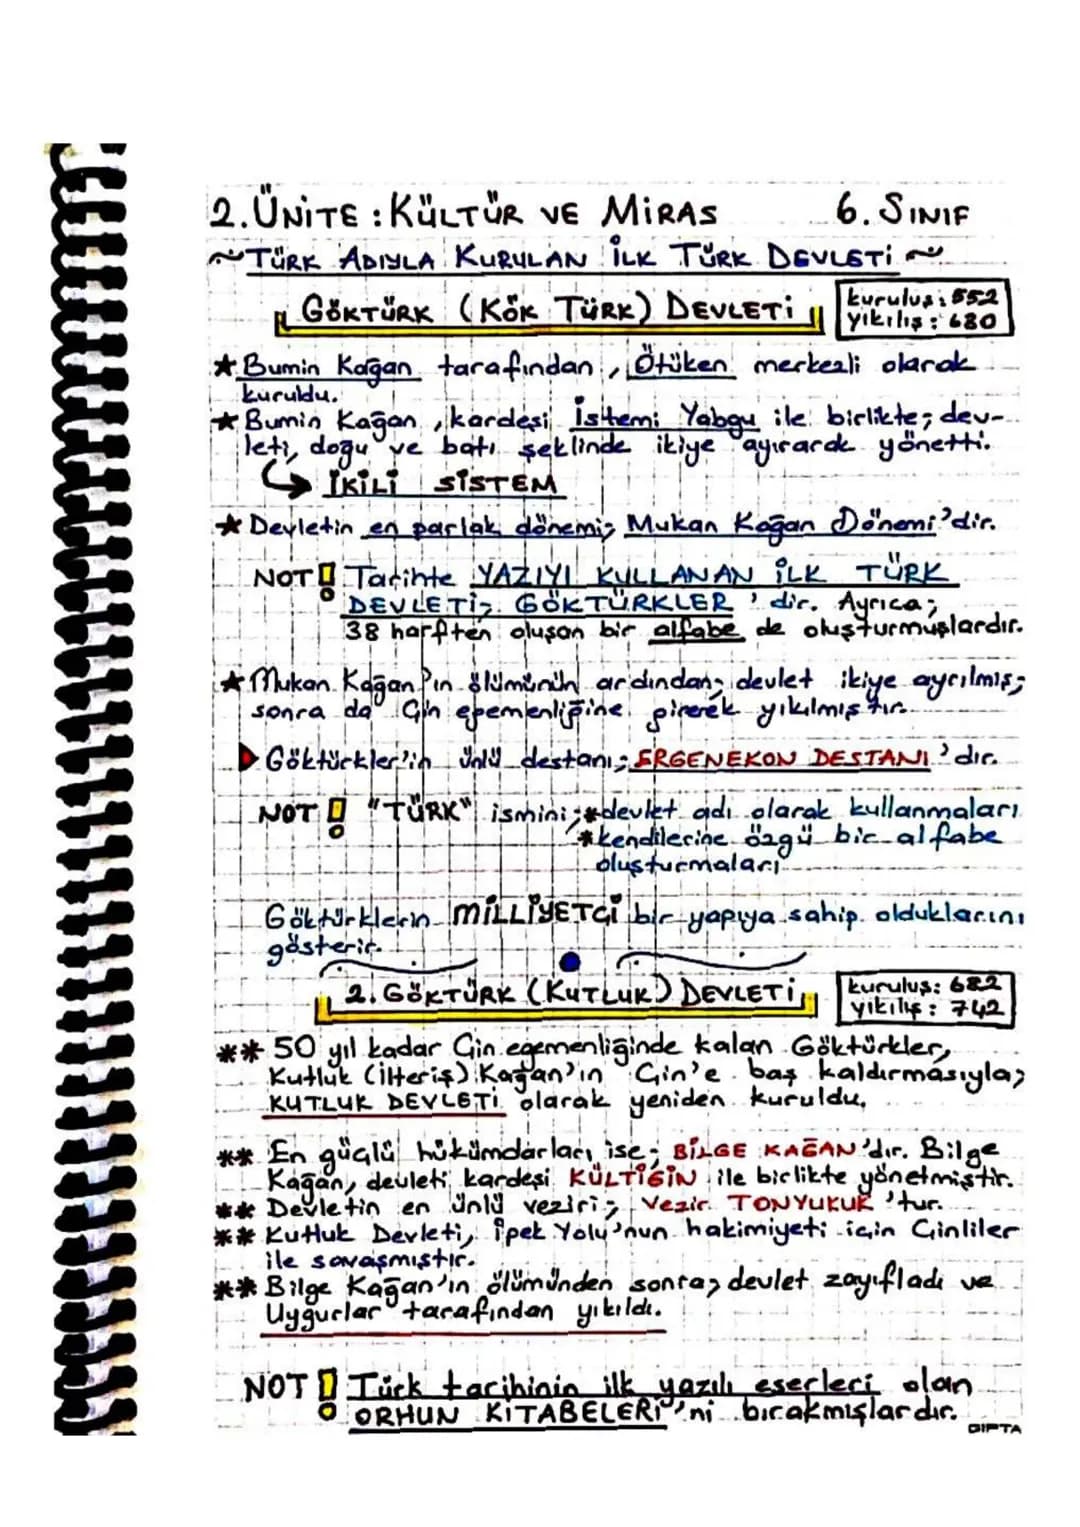 2. ÜNİTE : KÜLTÜR VE MİRAS 6. SINIF
~ TÜRK ADIYLA KURULAN İLK TÜRK DEVLETİ ~
GÖKTÜRK (KÖK TÜRK) DEVLETİ
kuruluş : 552
yıkılış : 680
★ Bumin Kağan tarafından, Ötüken merkezli olarak
kuruldu.
★ Bumin Kağan, kardeşi İstemi Yabgu ile birlikte; dev-
leti, doğu ve batı şeklinde ikiye ayırarak yönetti.
↳ İKİLİ SİSTEM
★ Devletin en parlak dönemi; Mukan Kağan Dönemi'dir.
NOT! Tarihte YAZIYI KULLANAN İLK TÜRK
DEVLETİ; GÖKTÜRKLER'dir. Ayrıca;
38 harften oluşan bir alfabe de oluşturmuşlardır.
★ Mukan Kağan'ın ölümünün ardından; devlet ikiye ayrılmış;
sonra da Çin egemenliğine girerek yıkılmıştır.
Göktürkler'in ünlü destanı; ERGENEKON DESTANI'dır.
NOT! "TÜRK" ismini; *devlet adı olarak kullanmaları
*kendilerine özgü bir alfabe
oluşturmaları
Göktürklerin MİLLİYETÇİ bir yapıya sahip olduklarını
gösterir.
2. GÖKTÜRK (KUTLUK) DEVLETİ
kuruluş : 682
yıkılış : 742
** 50 yıl kadar Çin egemenliğinde kalan Göktürkler,
Kutluk (İlteriş) Kağan'ın Çin'e baş kaldırmasıyla;
KUTLUK DEVLETİ olarak yeniden kuruldu.
** En güçlü hükümdarları ise; BİLGE KAĞAN'dır. Bilge
Kağan, devleti kardeşi KÜLTİGİN ile birlikte yönetmiştir.
** Devletin en ünlü veziri; Vezir TONYUKUK'tur.
** Kutluk Devleti, İpek Yolu'nun hakimiyeti için Çinliler
ile savaşmıştır.
** Bilge Kağan'ın ölümünden sonra; devlet zayıfladı ve
Uygurlar tarafından yıkıldı.
NOT! Türk tarihinin ilk yazılı eserleri olan
ORHUN KİTABELERİ'ni bırakmışlardır.
DIPTA